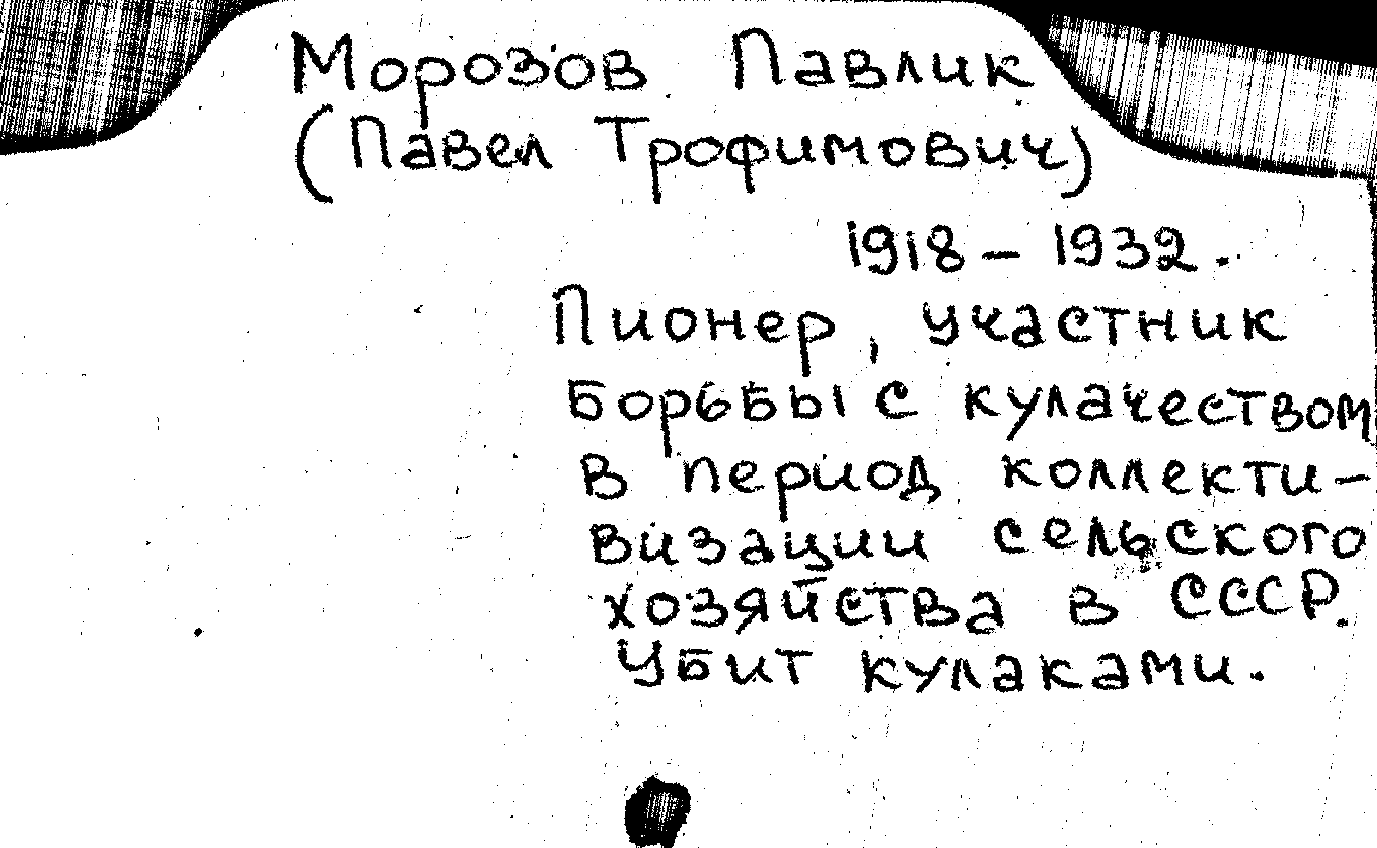 Морозов Павлик
(Павел Трофимович)
1918 – 1932.
Пионер, участник
борьбы с кулачеством
в период коллекти-
визации сельского
хозяйства в СССР.
Убит кулаками.